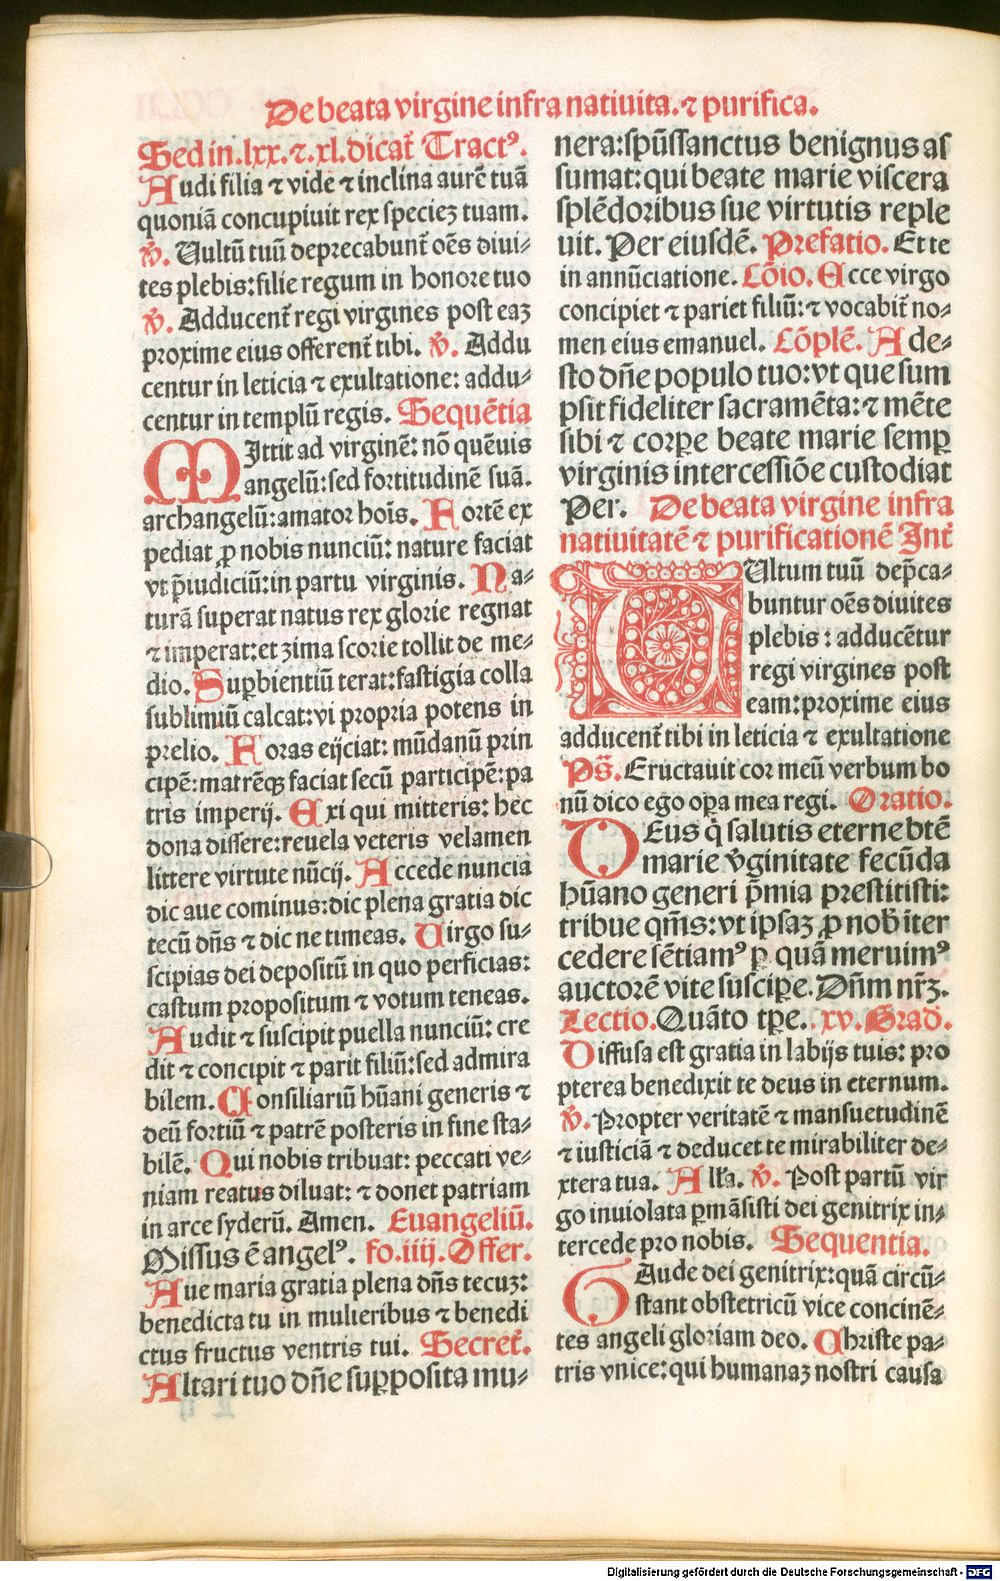 De beata virgine infra natiuita. ⁊ purifica.
Sed in .lxx. ⁊ .xl. dicat᷑ Tractꝰ.
Audi filia ⁊ vide ⁊ inclina aurē tuā
quoniā concupiuit rex specieꝫ tuam.
℣. Uultū tuū deprecabunt᷑ oēs diui⸗
tes plebis: filie regum in honore tuo
℣. Adducent᷑ regi virgines post eaꝫ
proxime eius offerent᷑ tibi. ℣. Addu
centur in leticia ⁊ exultatione: addu⸗
centur in templū regis. Sequētia
MIttit ad virginē: nō quēuis
angelū: sed fortitudinē suā.
archangelū: amator hoīs. Fortē ex
pediat ꝓ nobis nunciū: nature faciat
vt p̄iudiciū: in partu virginis. Na⸗
turā superat natus rex glorie regnat
⁊ imperat: et zima scorie tollit de me⸗
dio. Suꝑbientiū terat: fastigia colla
sublimiū calcat: vi propria potens in
prelio. Foras eijciat: mūdanū prin
cipē: matrēqꝫ faciat secū participē: pa
tris imperij. Exi qui mitteris: hec
dona differe: reuela veteris velamen
littere virtute nūcij. Accede nuncia
dic aue cominus: dic plena gratia dic
tecū dn̄s ⁊ dic ne timeas. Uirgo su⸗
scipias dei depositū in quo perficias:
castum propositum ⁊ votum teneas.
Audit ⁊ suscipit puella nunciū: cre
dit ⁊ concipit ⁊ parit filiū: sed admira
bilem. Consiliariū hūani generis ⁊
deū fortiū ⁊ patrē posteris in fine sta⸗
bilē. Qui nobis tribuat: peccati ve⸗
niam reatus diluat: ⁊ donet patriam
in arce syderū. Amen. Euangeliū.
Missus ē angelꝰ. fo. iiij. Offer.
Aue maria gratia plena dn̄s tecuꝫ:
benedicta tu in mulieribus ⁊ benedi
ctus fructus ventris tui. Secret᷑.
Altari tuo dn̄e suꝑposita mu⸗
nera: spūssanctus benignus as
sumat: qui beate marie viscera
splēdoribus sue virtutis reple
uit. Per eiusdē. Prefatio. Et te
in annūciatione. Cōio. Ecce virgo
concipiet ⁊ pariet filiū: ⁊ vocabit᷑ no⸗
men eius emanuel. Cōplē. Ade⸗
sto dn̄e populo tuo: vt que sum
psit fideliter sacramēta: ⁊ mēte
sibi ⁊ corꝑe beate marie semꝑ
virginis intercessiōe custodiat
Per. De beata virgine infra
natiuitatē ⁊ purificationē Int᷑
UUltum tuū dep̄ca⸗
buntur oēs diuites
plebis: adducētur
regi virgines post
eam: proxime eius
adducent᷑ tibi in leticia ⁊ exultatione
Ps̄. Eructauit cor meū verbum bo
nū dico ego oꝑa mea regi. Oratio.
DEus q̇ salutis eterne btē
marie v̓ginitate fecūda
hūano generi p̄mia prestitisti:
tribue qm̄s: vt ipsaꝫ ꝓ nob̄ iter
cedere sētiamꝰ ꝑ quā meruimꝰ
auctorē vite suscipe. Dn̄m nr̄ꝫ.
Lectio. Quāto tꝑe. xv. Grad.
Diffusa est gratia in labijs tuis: pro
pterea benedixit te deus in eternum.
℣. Propter veritatē ⁊ mansuetudinē
⁊ iusticiā ⁊ deducet te mirabiliter de⸗
xtera tua. Alla. ℣. Post partū vir
go inuiolata ꝑmāsisti dei genitrix in⸗
tercede pro nobis. Sequentia.
GAude dei genitrix: quā circū⸗
stant obstetricū vice concinē⸗
tes angeli gloriam deo. Christe pa⸗
tris vnice: qui humanaꝫ nostri causa
Digitalisierung gefördert durch die Deutsche Forschungsgemeinschaft - DFG